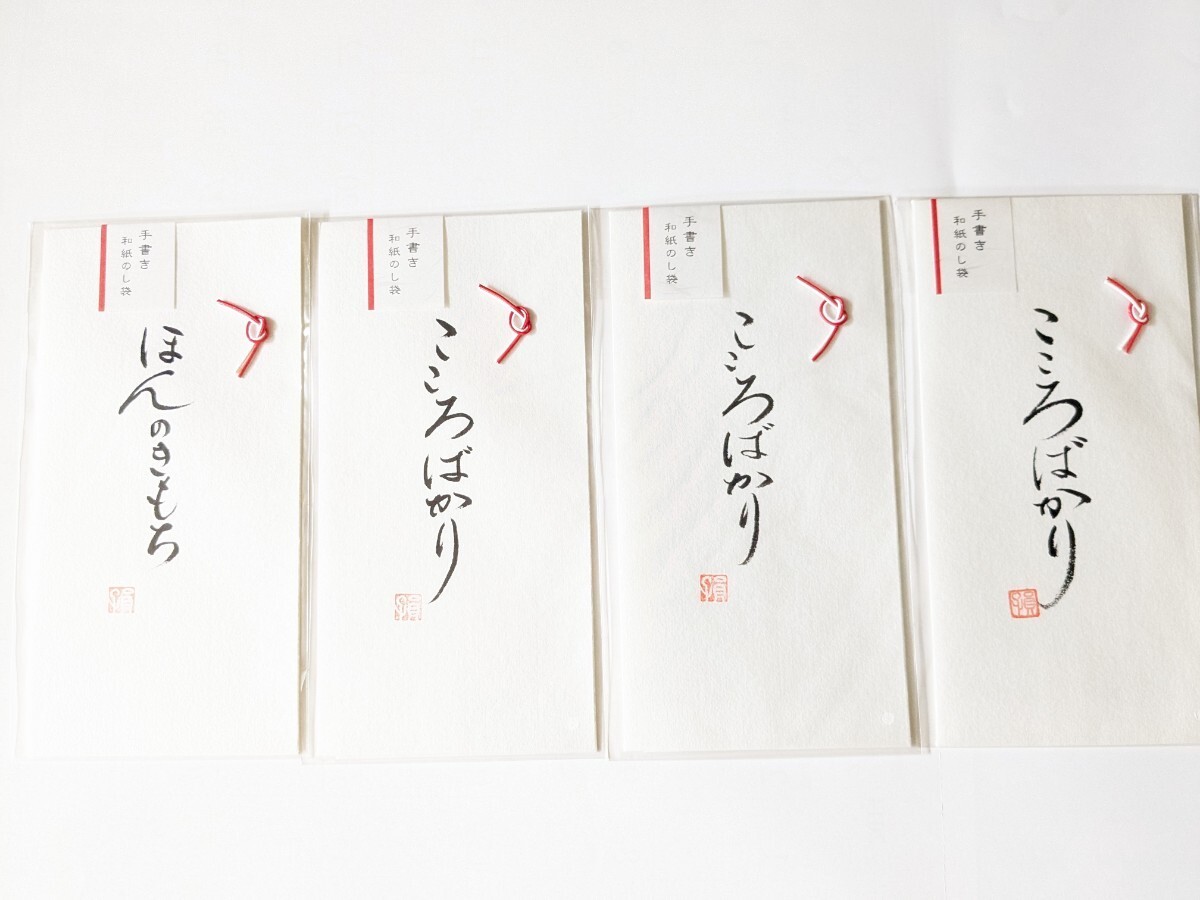 手書き
和紙のし袋
ほんのきもち
手書き
和紙のし袋
こころばかり
手書き
和紙のし袋
こころばかり
手書き
和紙のし袋
こころばかり